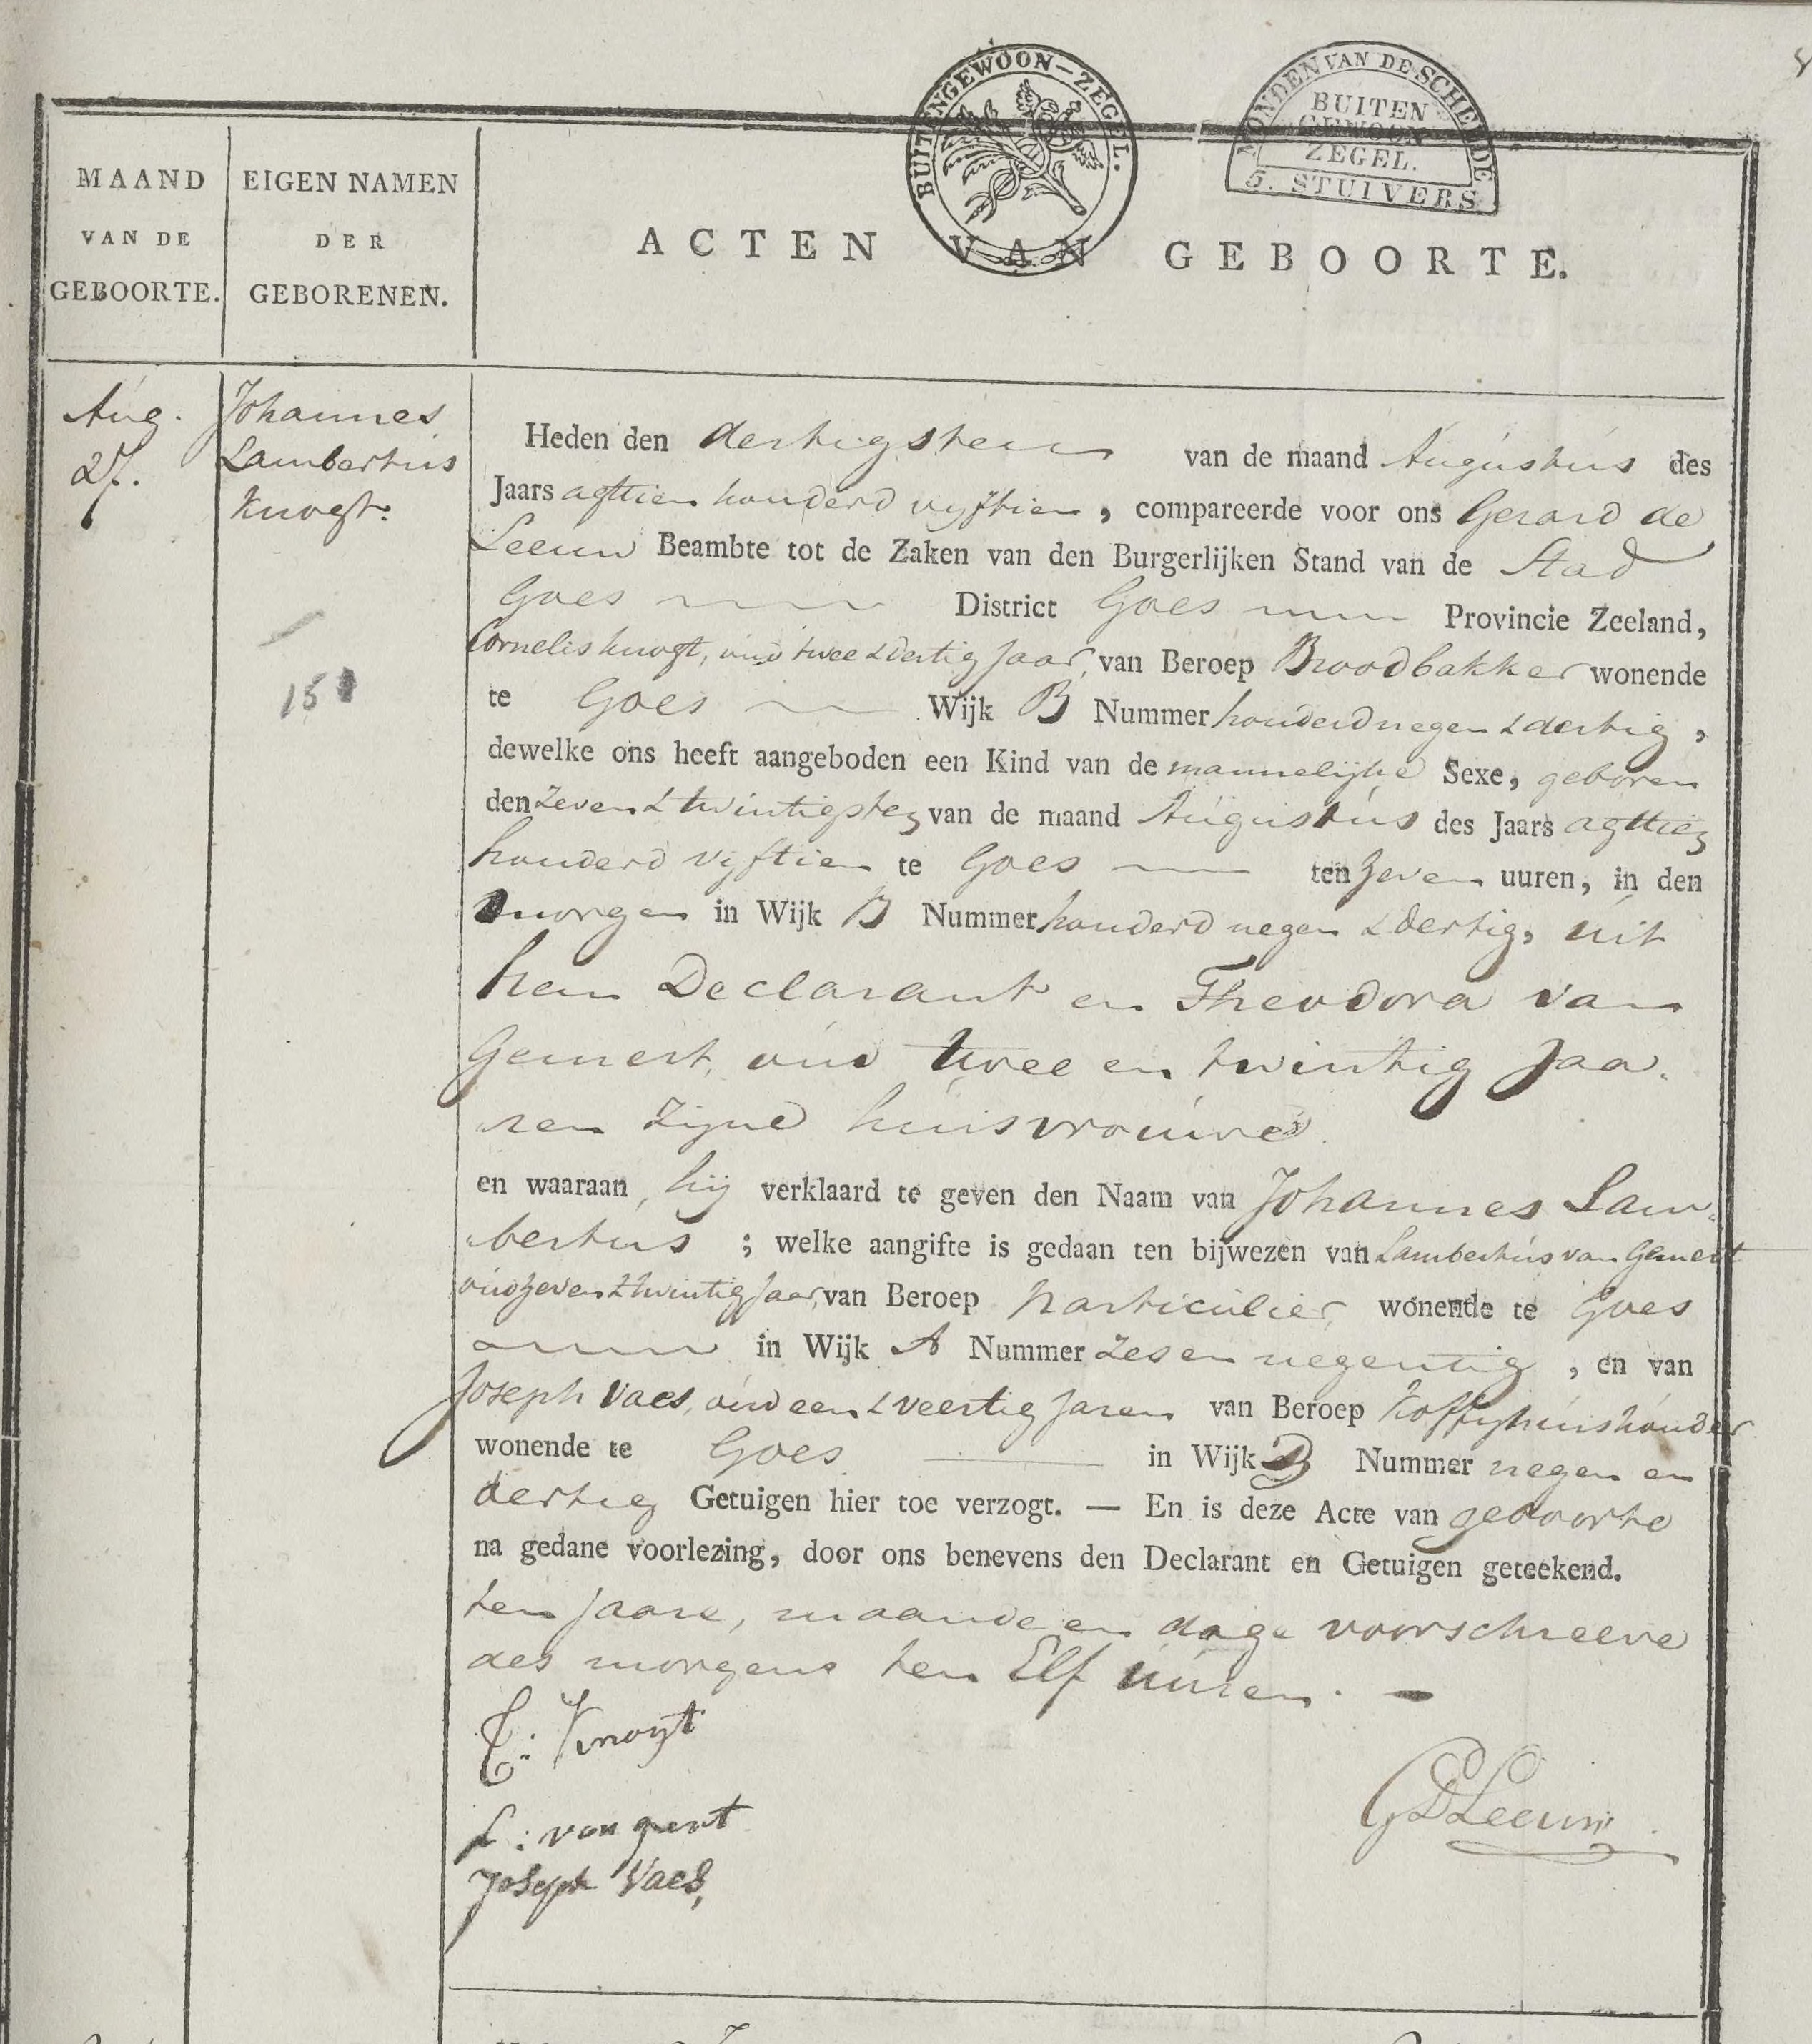 BUITENGEWOON-ZEGEL.
MONDEN VAN DE SCHELDE
BUITEN
GEWOON
ZEGEL.
5. STUIVERS
MAAND
VAN DE
GEBOORTE.
EIGEN NAMEN
DER
GEBORENEN.
ACTEN VAN GEBOORTE.
Aug.
27.
Johannes
Lambertus
Knogt.
151
Heden den dertigsten van de maand Augustus des
Jaars agttien honderd vyftien, compareerde voor ons Gerard de
Leeuw Beambte tot de Zaken van den Burgerlijken Stand van de Stad
Goes District Goes Provincie Zeeland,
Cornelis Knogt, oud twee & dertig Jaar, van Beroep Broodbakker wonende
te Goes Wijk B Nummer honderd negen & dertig,
dewelke ons heeft aangeboden een Kind van de mannelijke Sexe, geboren
den zeven & twintigsten van de maand Augustus des Jaars agttien
honderd vyftien te Goes ten zeven uuren, in den
morgen in Wijk B Nummer honderd negen & dertig, uit
hem Declarant en Theodora van
Gemert, oud twee en twintig Jaa-
ren zijne huisvrouwe.
en waaraan hij verklaard te geven den Naam van Johannes Lam-
bertus ; welke aangifte is gedaan ten bijwezen van Lambertus van Gemert
oud zeven & twintig Jaar, van Beroep particulier, wonende te Goes
in Wijk A Nummer zes en negentig , en van
Joseph Vaes, oud een & veertig Jaren van Beroep koffyhuishouder
wonende te Goes in Wijk D Nummer negen en
dertig Getuigen hier toe verzogt. — En is deze Acte van geboorte
na gedane voorlezing, door ons benevens den Declarant en Getuigen geteekend.
ten jaare, maande en dage voorschreeve
des morgens ten Elf uuren. —
C: Knogt
GDLeeuw
L: van gemt
Joseph Vaes,